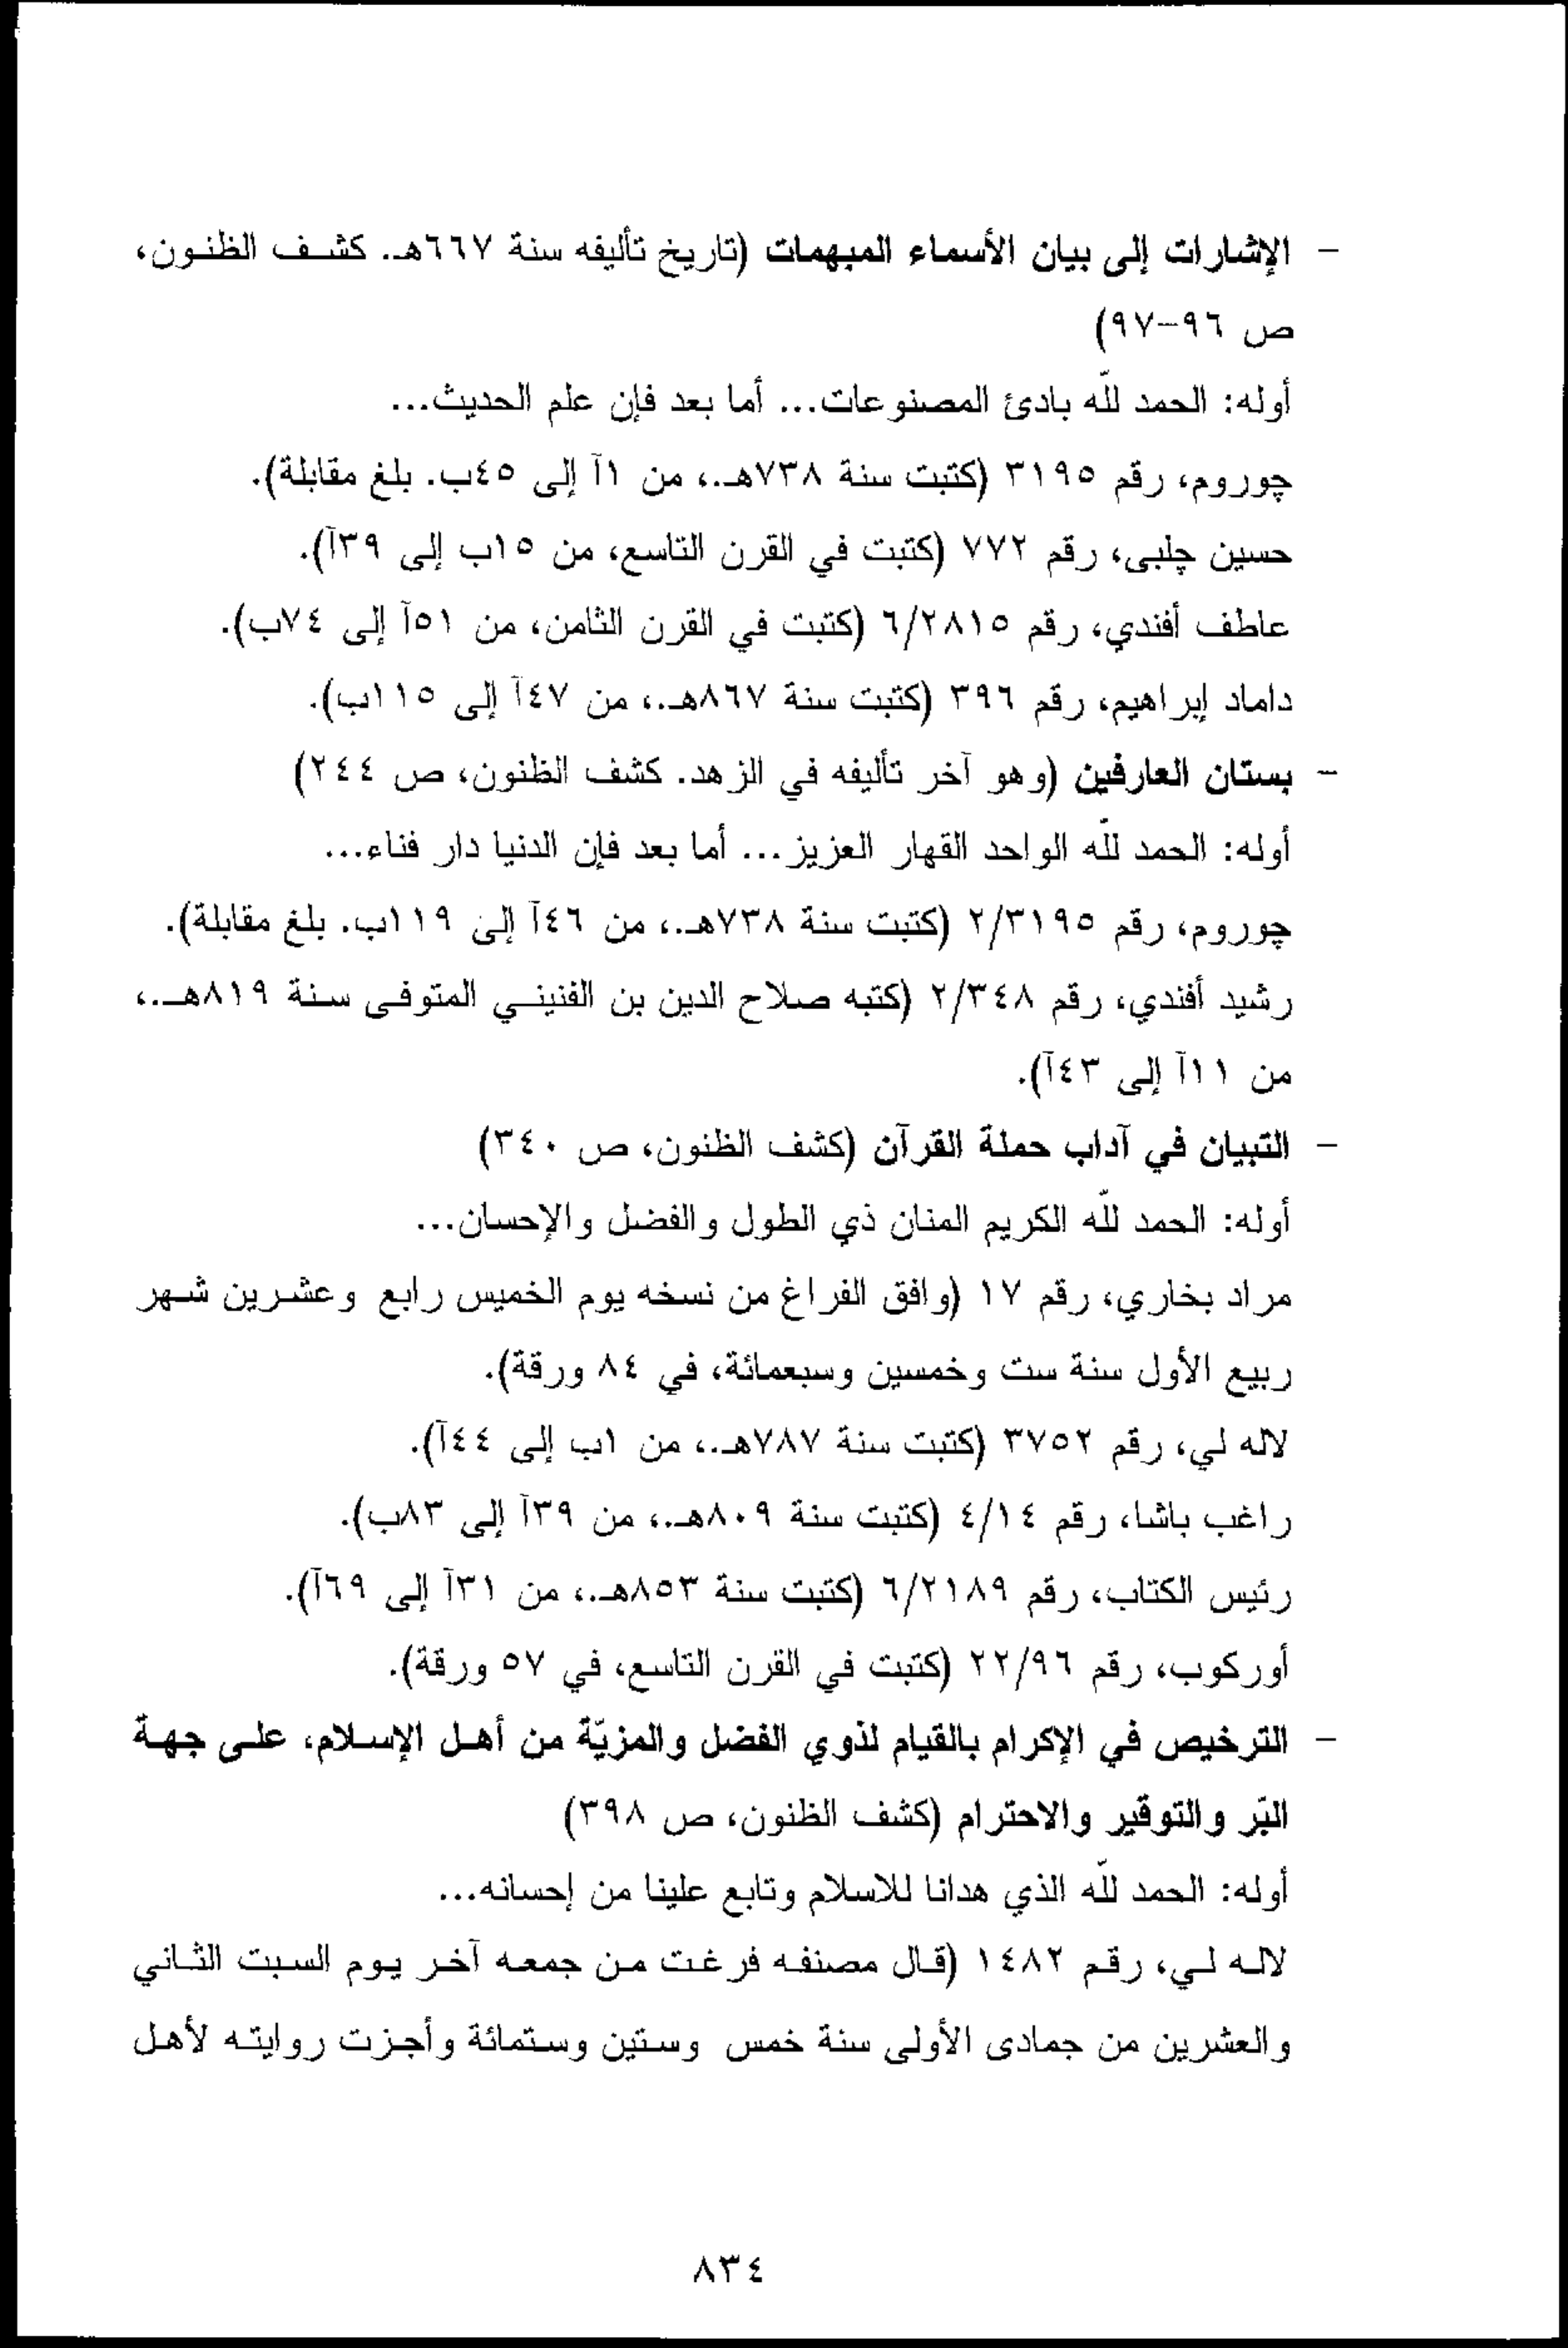 - الإشارات إلى بيان الأسماء المبهمات (تاريخ تأليفه سنة ٦٦٧هـ.. كشف الظنون،
ص ٩٦-٩٧)
أوله: الحمد للّه بادئ المصنوعات... أما بعد فإن علم الحديث...
چوروم، رقم ٣١٩٥ (كتبت سنة ٧٣٨هـ.، من ١آ إلى ٤٥ب. بلغ مقابلة).
حسين چلبى، رقم ٧٧٢ (كتبت في القرن التاسع، من ١٥ب إلى ٣٩آ).
عاطف أفندي، رقم ٦/٢٨١٥ (كتبت في القرن الثامن، من ٥١آ إلى ٧٤ب).
داماد إبراهيم، رقم ٣٩٦ (كتبت سنة ٨٦٧هـ.، من ٤٧آ إلى ١١٥ب).
- بستان العارفين (وهو آخر تأليفه في الزهد. كشف الظنون، ص ٢٤٤)
أوله: الحمد للّه الواحد القهار العزيز... أما بعد فإن الدنيا دار فناء...
چوروم، رقم ٢/٣١٩٥ (كتبت سنة ٧٣٨هـ.، من ٤٦آ إلى ١١٩ب. بلغ مقابلة).
رشيد أفندي، رقم ٢/٣٤٨ (كتبه صلاح الدين بن الفنيني المتوفى سنة ٨١٩هـ.،
من ١١آ إلى ٤٣آ).
- التبيان في آداب حملة القرآن (كشف الظنون، ص ٣٤٠)
أوله: الحمد للّه الكريم المنان ذي الطول والفضل والإحسان...
مراد بخاري، رقم ١٧ (وافق الفراغ من نسخه يوم الخميس رابع وعشرين شهر
ربيع الأول سنة ست وخمسين وسبعمائة، في ٨٤ ورقة).
لاله لي، رقم ٣٧٥٢ (كتبت سنة ٧٨٧هـ.، من ١ب إلى ٤٤آ).
راغب باشا، رقم ٤/١٤ (كتبت سنة ٨٠٩هـ.، من ٣٩آ إلى ٨٣ب).
رئيس الكتاب، رقم ٦/٢١٨٩ (كتبت سنة ٨٥٣هـ.، من ٣١آ إلى ٦٩آ).
أوركوب، رقم ٢٢/٩٦ (كتبت في القرن التاسع، في ٥٧ ورقة).
- الترخيص في الإكرام بالقيام لذوي الفضل والمزيّة من أهل الإسلام، على جهة
البّر والتوقير والاحترام (كشف الظنون، ص ٣٩٨)
أوله: الحمد للّه الذي هدانا للاسلام وتابع علينا من إحسانه...
لاله لي، رقم ١٤٨٢ (قال مصنفه فرغت من جمعه آخر يوم السبت الثاني
والعشرين من جمادى الأولى سنة خمس وستين وستمائة وأجزت روايته لأهل
٨٣٤